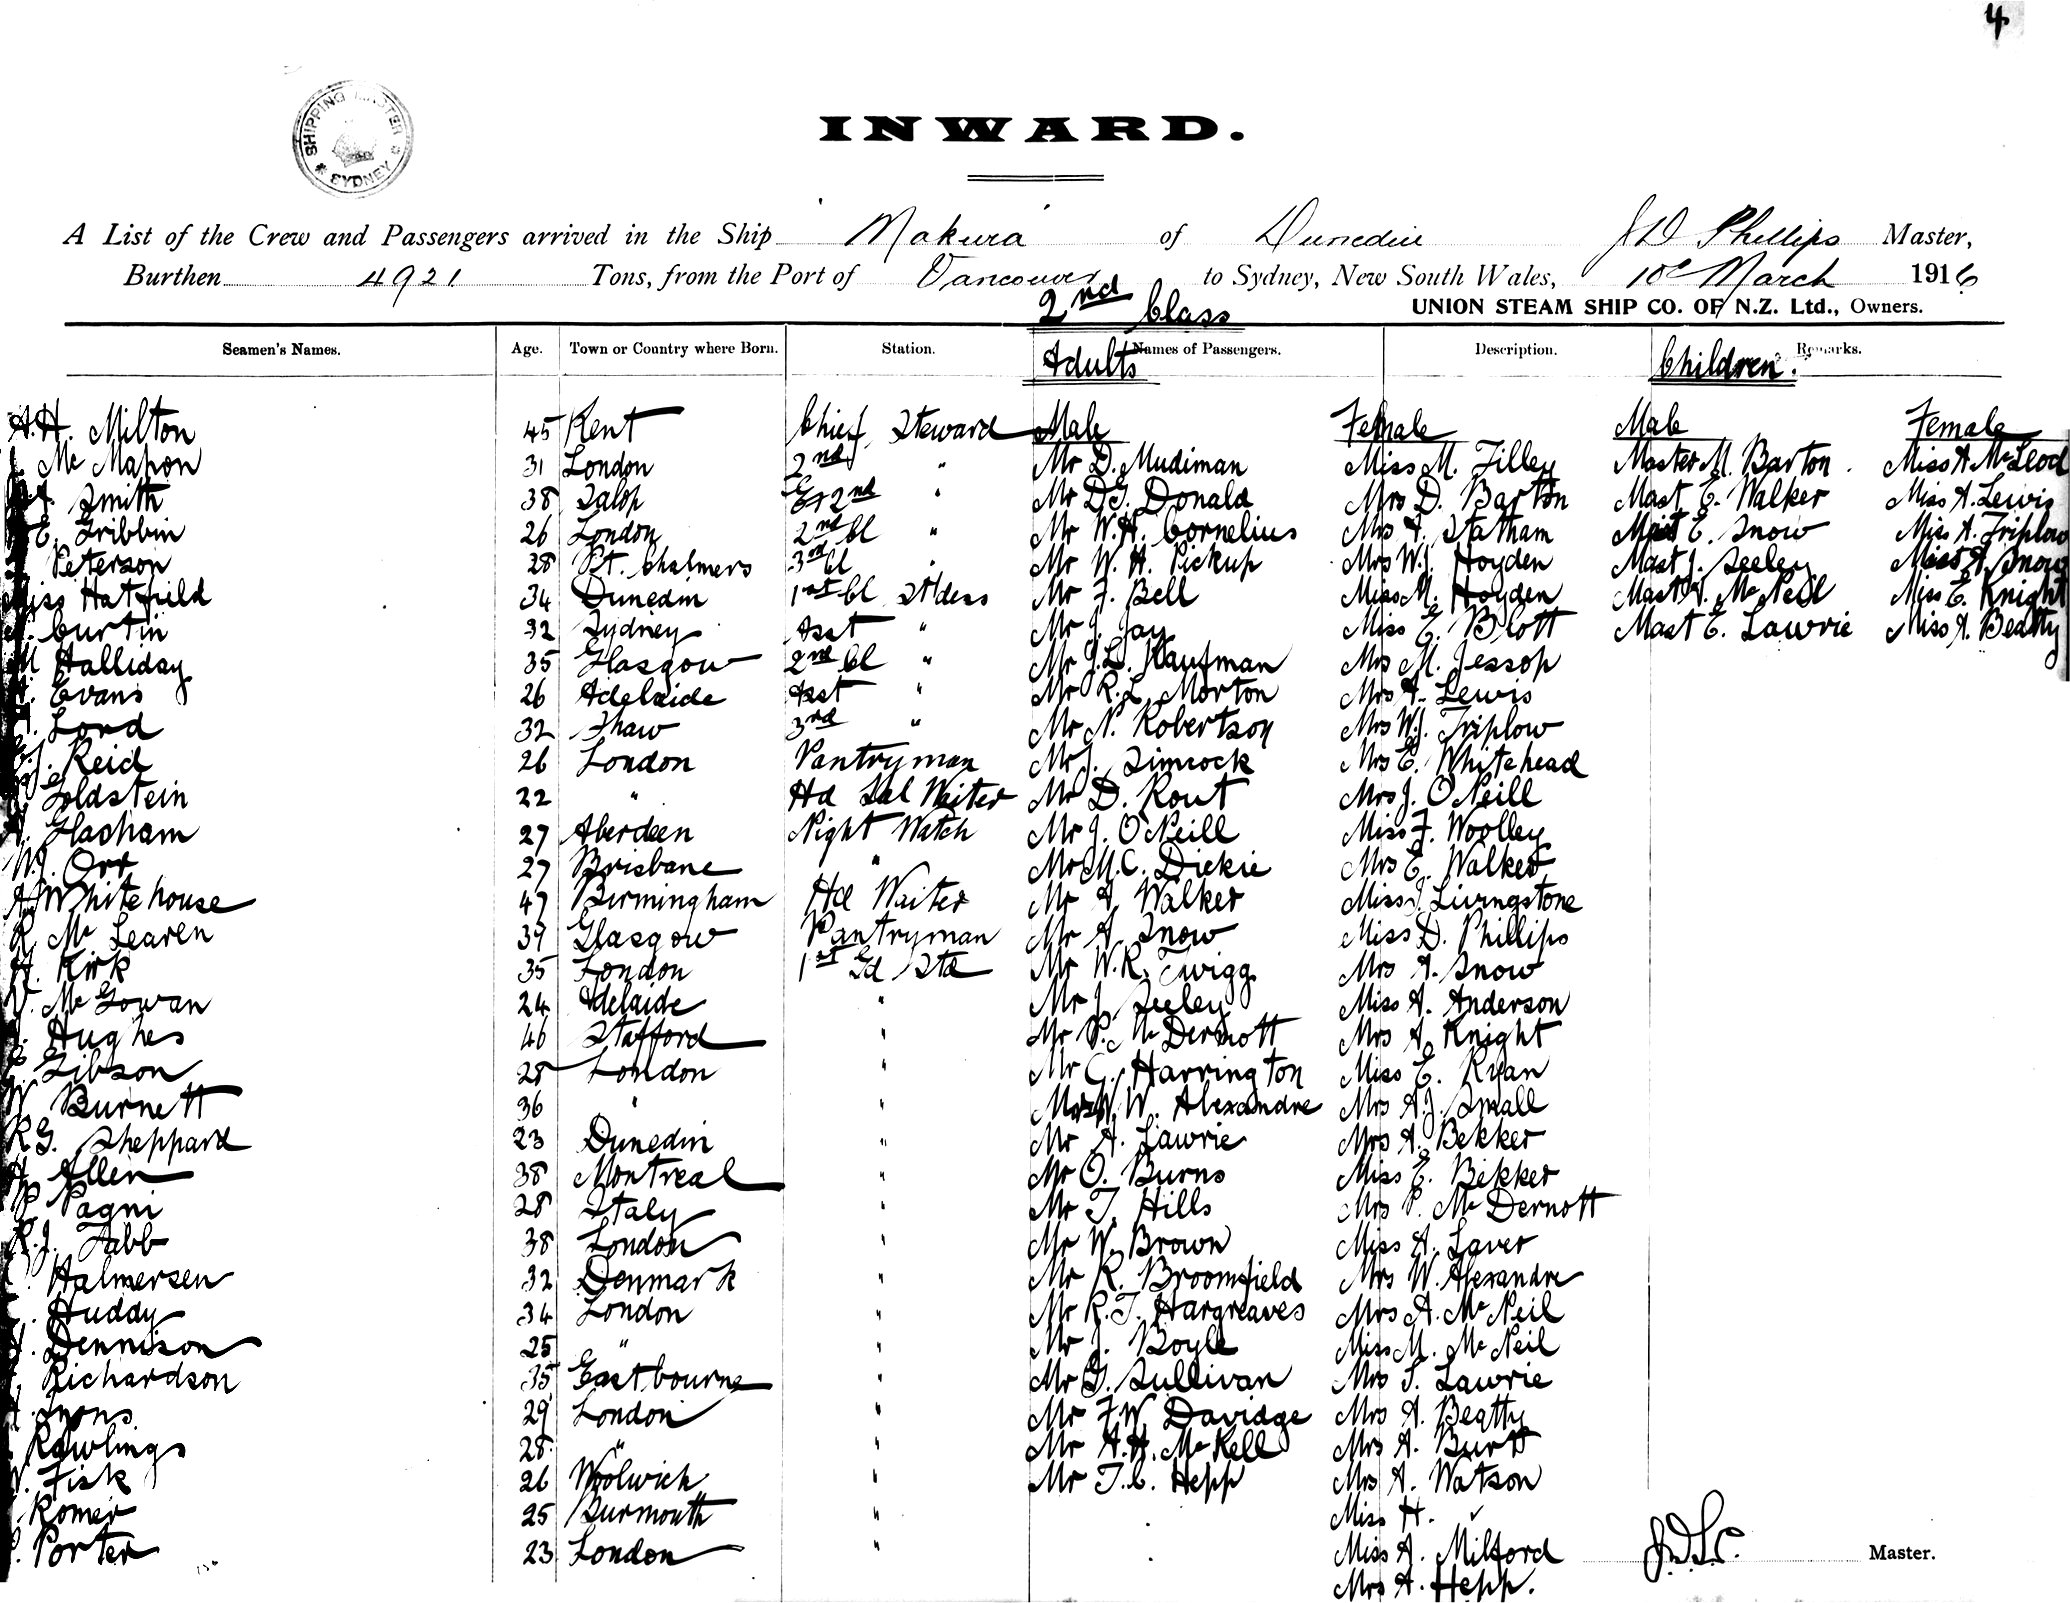 4
SHIPPING MASTER
* SYDNEY *
INWARD.
A List of the Crew and Passengers arrived in the Ship Makura of Dunedin J D Phillips Master,
Burthen 4921 Tons, from the Port of Vancouver to Sydney, New South Wales, 10 March 1916
2nd Class UNION STEAM SHIP CO. OF N.Z. Ltd., Owners.
Seamen's Names. Age. Town or Country where Born. Station. Names of Passengers. Description. Remarks.
Adults Children.
A.H. Milton 45 Kent Chief Steward Male Female Male Female
Mc Mahon 31 London 2nd " Mr D. Mudiman Miss M. Tilley Master M. Barton Miss A McLeod
Smith 38 Salop 2nd " Mr D.G. Donald Mrs D. Barton Mast E. Walker Miss A. Lewis
E. Gribbin 26 London 2nd Cl " Mr W.H. Cornelius Mrs A. Statham Mast E. Snow Miss A. Triplow
Peterson 28 Pt. Chalmers 3rd Cl " Mr W. H. Pickup Mrs W.J. Hoyden Mast J. Seeley Miss A. Snow
Miss Hatfield 34 Dunedin 1st Cl Stdess Mr F. Bell Miss M. Hoyden Mast A. McNeil Miss E. Knight
Curtin 32 Sydney Asst " Mr J. Jay Miss E. Blott Mast E. Lawrie Miss A. Beatty
M Halliday 35 Glasgow 2nd Cl " Mr J.L. Kaufman Mrs M. Jessop
Evans 26 Adelaide Asst " Mr R.L. Morton Mrs A. Lewis
Lord 32 Shaw 3rd " Mr N. Robertson Mrs W.J. Triplow
J. Reid 26 London Pantryman Mr J. Simcock Mrs E. Whitehead
Goldstein 22 " Hd Sal Waiter Mr D. Rout Mrs J. O'Neill
Glasham 27 Aberdeen Night Watch Mr J. O'Neill Miss F. Woolley
W.J. Orr 27 Brisbane " Mr M.C. Dickie Mrs E. Walker
A Whitehouse 47 Birmingham Hd Waiter Mr A. Walker Miss J. Livingstone
R. Mc Learen 39 Glasgow Pantryman Mr A. Snow Miss D. Phillips
H. Kirk 35 London 1st Gd Std Mr W.R. Twigg Mrs A. Snow
V. McGowan 24 Adelaide " Mr J. Seeley Miss A. Anderson
Hughes 46 Stafford " Mr P. McDermott Mrs A. Knight
Gibson 28 London " Mr C. Harrington Miss E. Ryan
W Burnett 36 " " W. Alexandre Mrs A.J. Small
R G. Sheppard 23 Dunedin " Mr A. Lawrie Mrs A. Bekker
H Allen 38 Montreal " Mr O. Burns Miss E. Bekker
P. Pagni 28 Italy " Mr T. Hills Mrs P. McDermott
R.J. Tabb 38 London " Mr W. Brown Miss A. Laver
Halmersen 32 Denmark " Mr R. Broomfield Mrs W. Alexandre
Huddy 34 London " Mr R.T. Hargreaves Mrs A. McNeil
Dennison 25 " " Mr J. Boyle Miss M. McNeil
Richardson 35 Eastbourne " Mr G. Sullivan Mrs S. Lawrie
Lyons 29 London " Mr F.W. Davidge Mrs A. Beatty
Rawlings 28 " " Mr A.H. McKell Mrs A. Burtt
Fisk 26 Woolwich " Mr T.C. Hepp Mrs A. Watson
Romer 25 Burmouth " Miss H. "
Porter 23 London " Miss A. Milford Master.
Mrs A. Hepp.